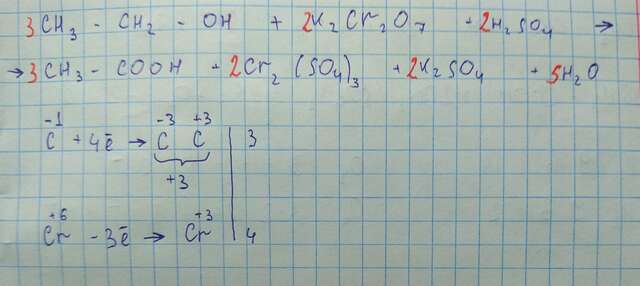 3CH₃ - CH₂ - OH + 2K₂Cr₂O₇ + 2H₂SO₄ →
→ 3CH₃ - COOH + 2Cr₂(SO₄)₃ + 2K₂SO₄ + 5H₂O
-1 -3 +3
C + 4ē → C C | 3
+3
+6 +3
Cr - 3ē → Cr | 4